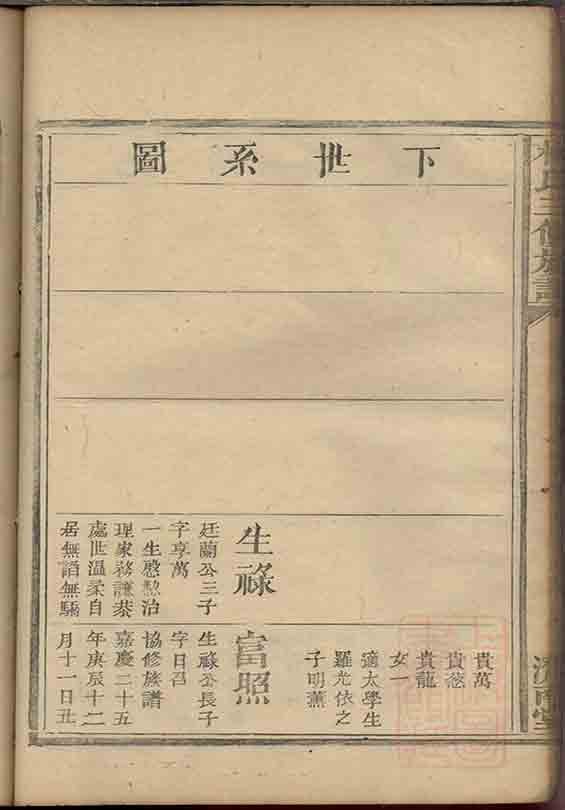 林氏三修族譜
濟南堂
下世系圖
生祿
廷蘭公三子
字享萬
一生慇懃治
理家務謙恭
處世溫柔自
居無諂無驕
貴萬
貴
貴龍
女一
適太學生
羅光依之
子明薰
富照
生祿公長子
字日召
協修族譜
嘉慶二十五
年庚辰十二
月十一日丑